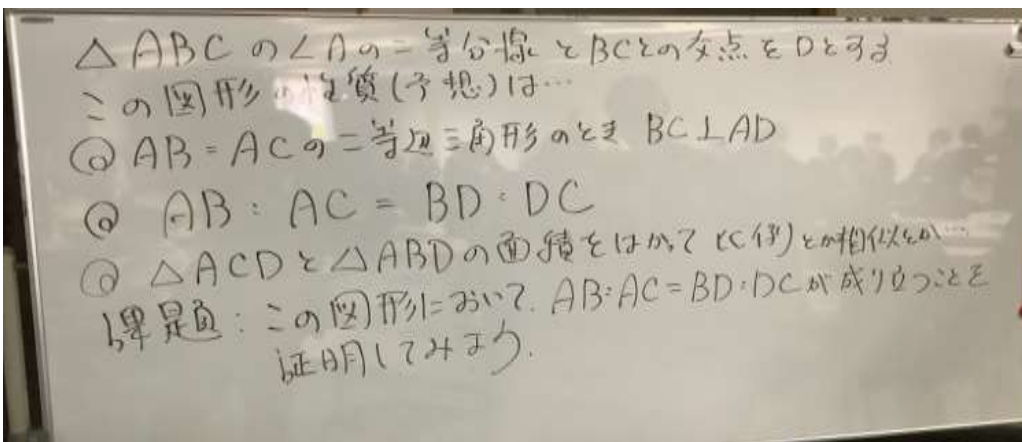 △ABCの∠Aの二等分線とBCとの交点をDとする
この図形の性質(予想)は…
◎ AB=ACの二等辺三角形のとき BC⊥AD
◎ AB:AC=BD:DC
◎ △ACDと△ABDの面積をはかって とか相似とか…
課題:この図形において、AB:AC=BD:DCが成り立つことを
証明してみよう.